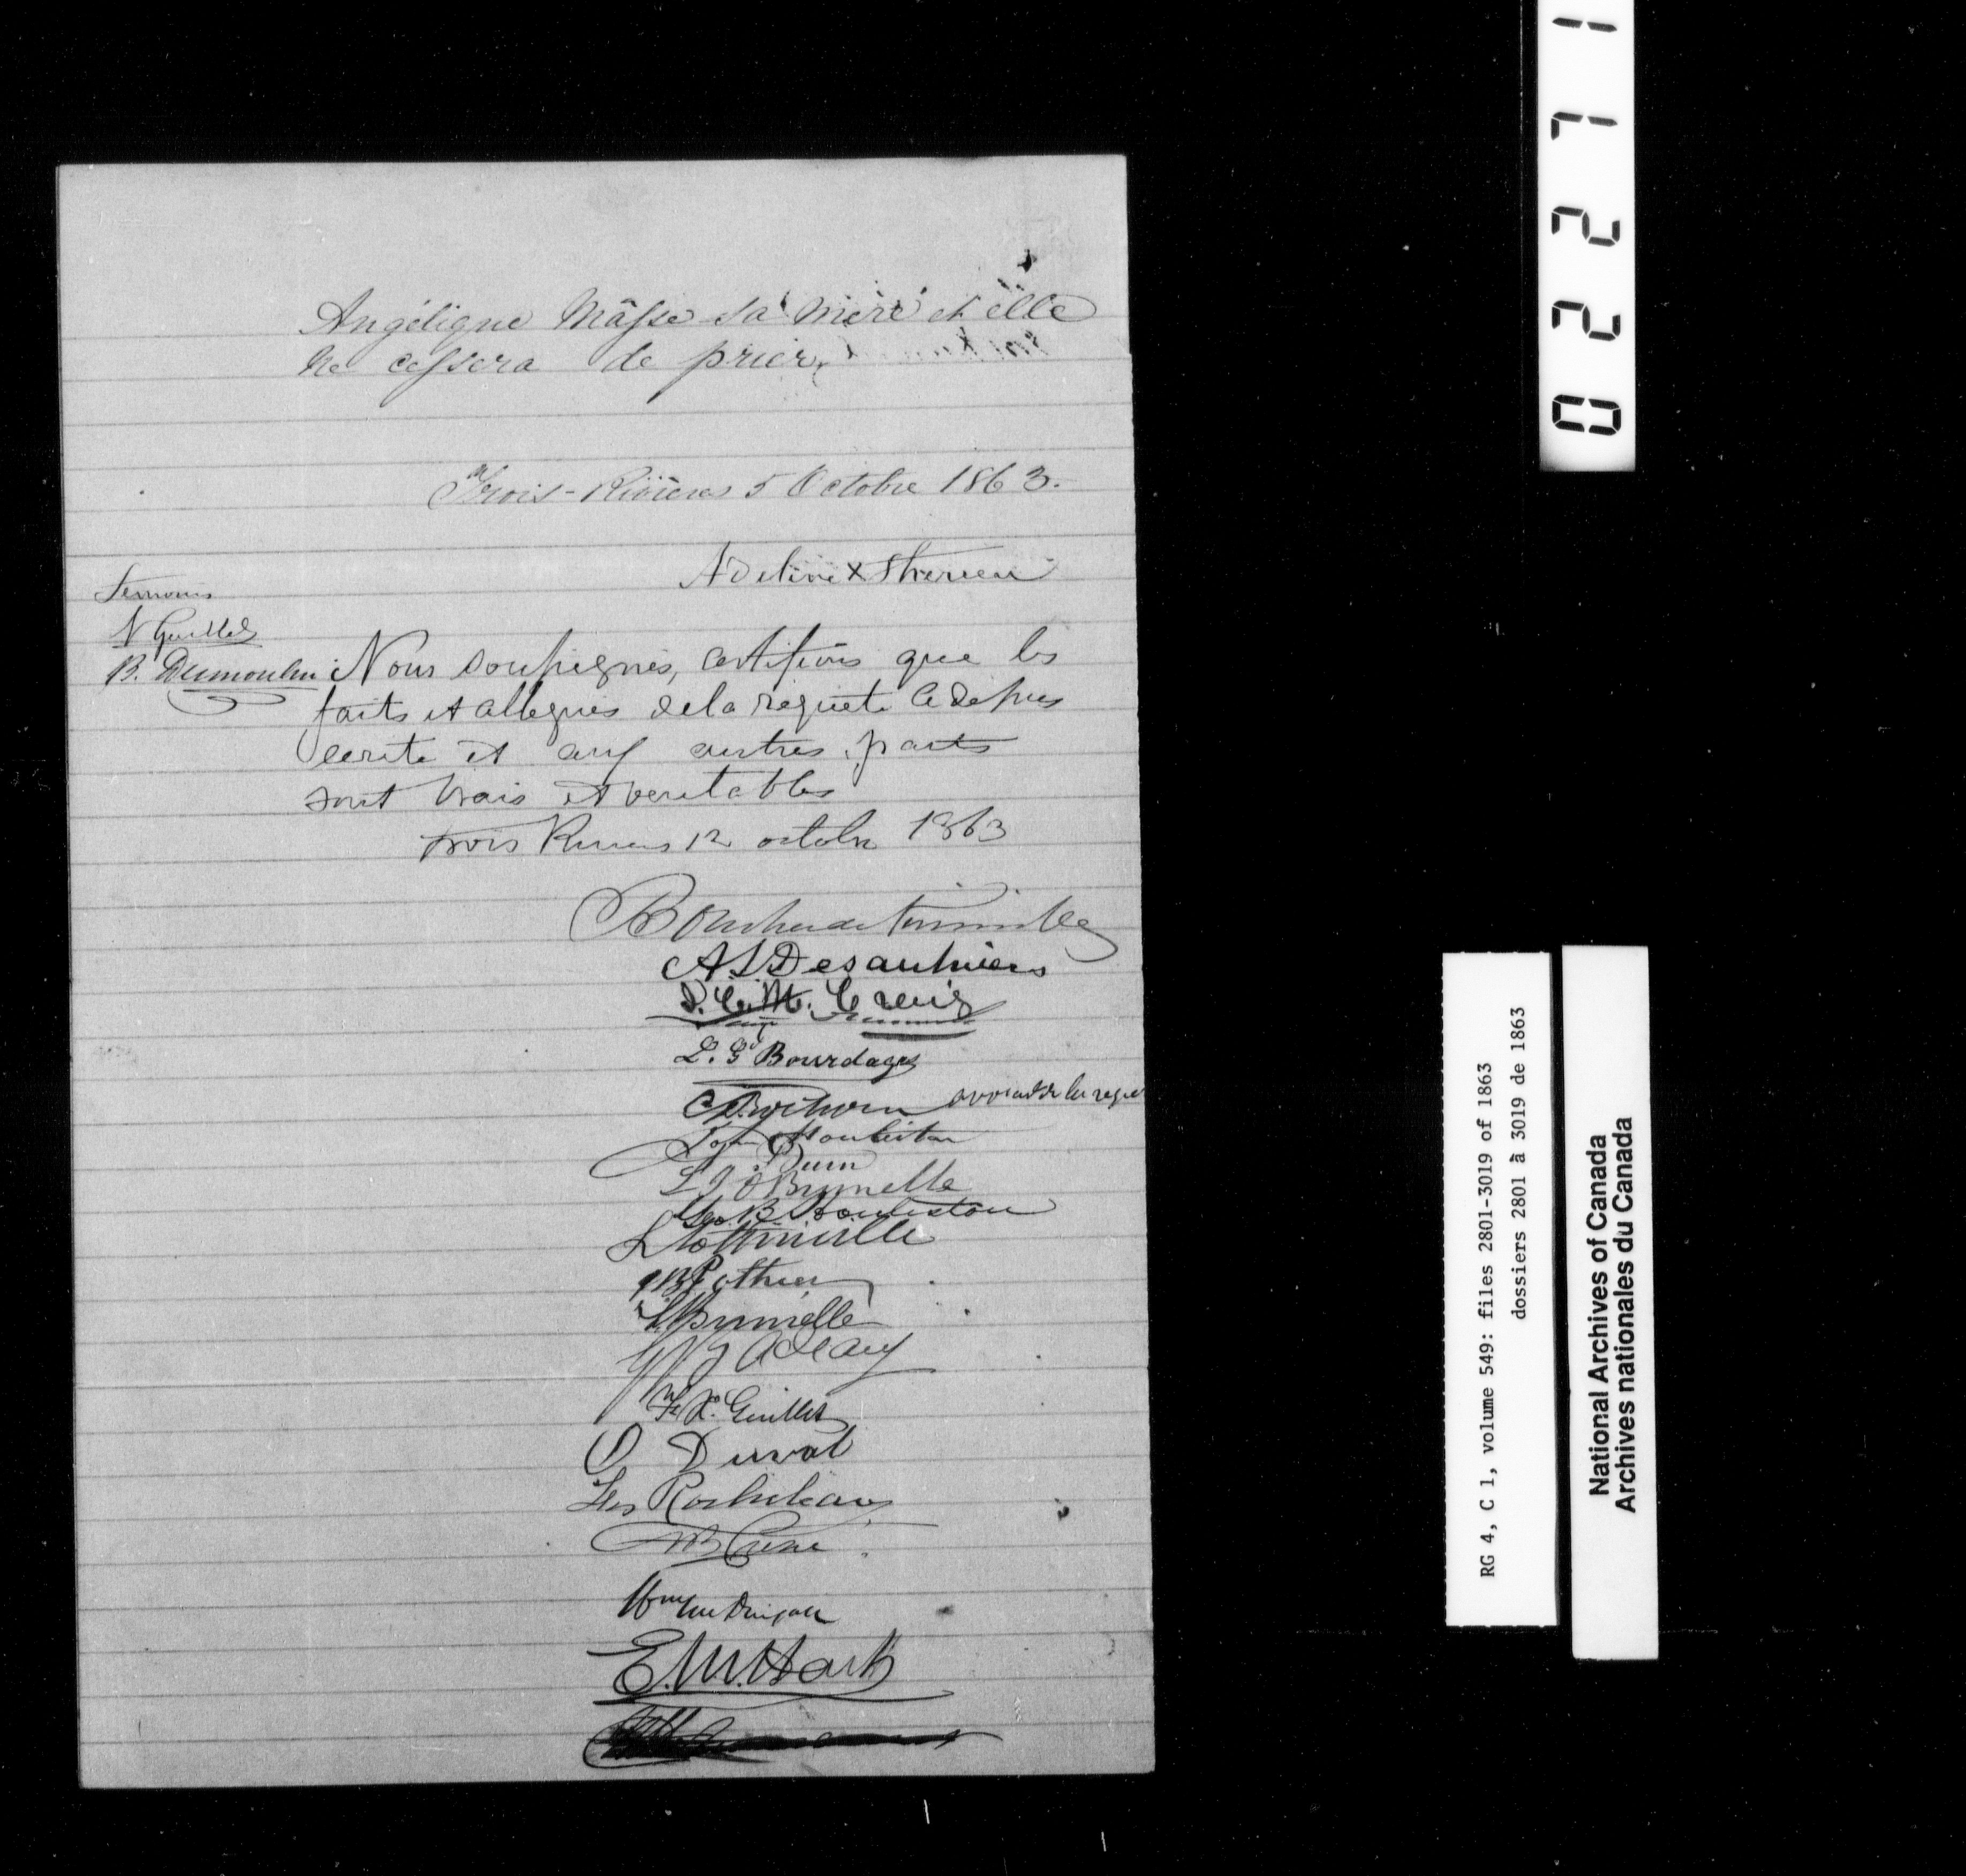 Angélique Mâsse sa mère et elle
ne cessera de prier.
Trois-Rivières 5 Octobre 1863.
Adeline X Therien
Temoins
N Guillet
B. Dumoulin
Nous soussignés, certifions que les
faits et allegués de la requete ci dessus
ecrite et aux autres parts
sont vrais et veritables
trois Rivieres 12 octobre 1863
Boucher de Niverville
A L Desaulniers
L. Gd Bourdages
avocat de la reque
Houliston
Dunn
Brunelle
Geo. B Houliston
L Methot
Pothier
Brunelle
F. X. Guillet
O Duval
Wm McDougall
E. M. Hart
02271
RG 4, C 1, volume 549: files 2801-3019 of 1863
dossiers 2801 à 3019 de 1863
National Archives of Canada
Archives nationales du Canada